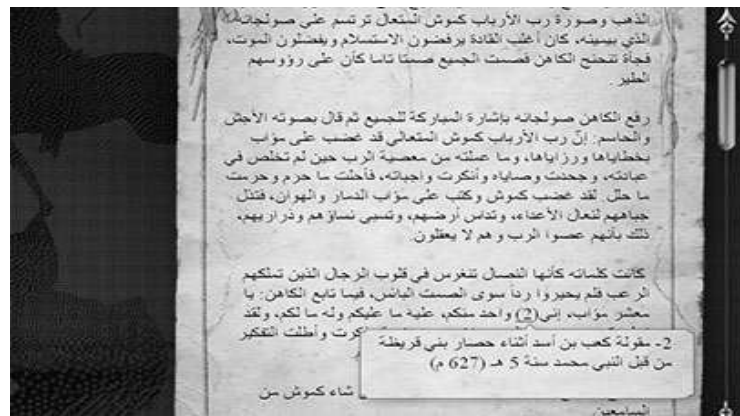 الذهب وصورة رب الأرباب كموش المتعال ترتسم على صولجانه
الذي بيمينه، كان أغلب القادة يرفضون الاستسلام ويفضلون الموت،
فجأة تنحنح الكاهن فصمت الجميع صمتا تاما كأن على رؤوسهم
الطير.
رفع الكاهن صولجانه بإشارة المباركة للجميع ثم قال بصوته الأجش
والحاسم: إنّ رب الأرباب كموش المتعالي قد غضب على مؤاب
بخطاياها ورزاياها، وما عملته من معصية الرب حين لم تخلص في
عبادته، وجحدت وصاياه وأنكرت واجباته، فأحلت ما حرم وحرمت
ما حلل. لقد غضب كموش وكتب على مؤاب الدمار والهوان، فتذل
جباههم لنعال الأعداء، وتداس أرضهم، وتسبى نساؤهم وذراريهم،
ذلك بأنهم عصوا الرب وهم لا يعقلون.
كانت كلماته كأنها النصال تنغرس في قلوب الرجال الذين تملكهم
الرعب فلم يحيروا رداً سوى الصمت البائس، فيما تابع الكاهن: يا
معشر مؤاب، إني(2) واحد منكم، عليه ما عليكم وله ما لكم، ولقد
كرت وأطلت التفكير
2- مقولة كعب بن أسد أثناء حصار بني قريظة
من قبل النبي محمد سنة 5 هـ (627 م)
شاء كموش من
السامعين